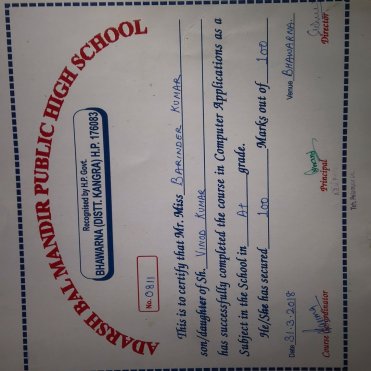 ADARSH BAL MANDIR PUBLIC HIGH SCHOOL
Recognised by H.P. Govt.
BHAWARNA (DISTT. KANGRA) H.P. 176083
No. 0811
This is to certify that Mr. Miss BARINDER KUMAR
son/daughter of Sh. VINOD KUMAR
has successfully completed the course in Computer Applications as a
Subject in the School in A+ grade.
He/She has secured 100 Marks out of 100
Date 31-3-2018 Venue BHAWARNA
Course Co-ordinator Principal Director